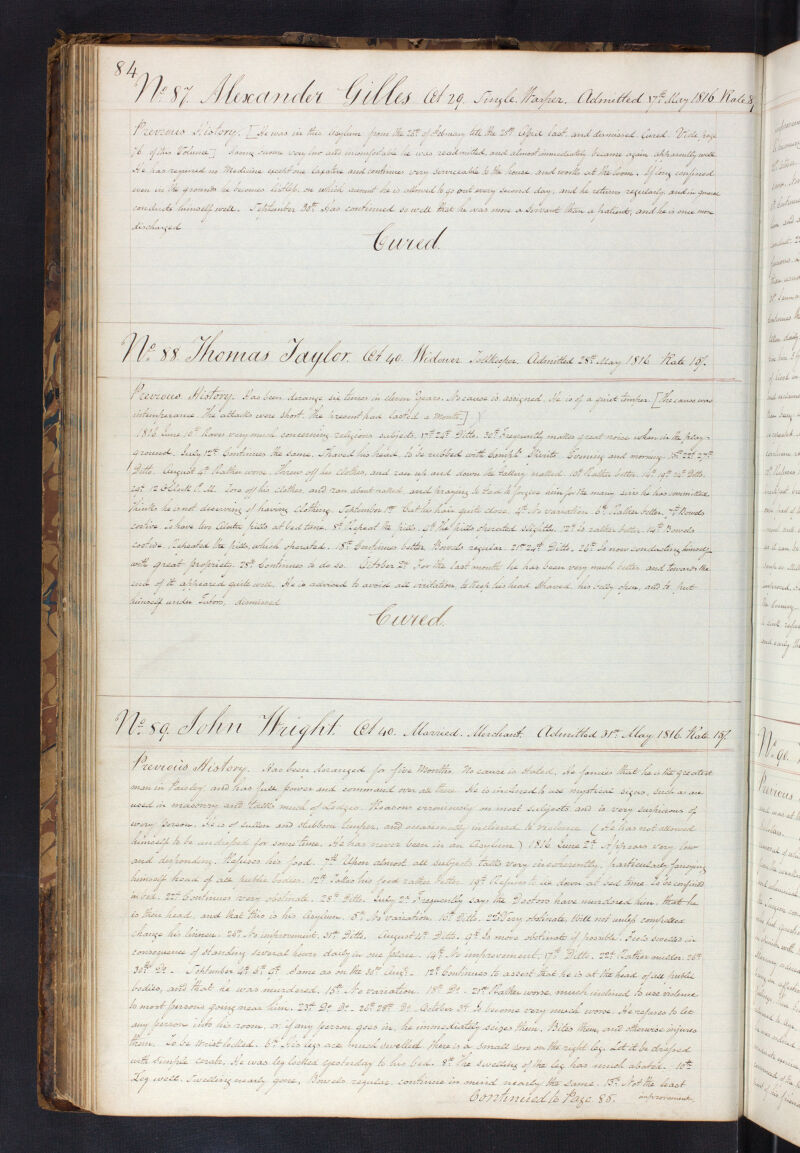 84
No. 87. Alexander Gibles Æt 29. Single. Warper. Admitted 17th May 1816 Rate 8/
Previous History. [He was in this Asylum from the 26th of February till the 25th April last, and dismissed Cured. Vide page
76 of this Volume] very low and he was readmitted, and almost immediately became again apparently well.
He has required no Medicine except one laxative and continues very serviceable to the house, and works at the loom. If long confined
even in the grounds he becomes listless, on which account he is allowed to go out every second day, and he returns regularly, and in general
conducts himself well. September 30th Has continued so well that he was more a servant than a patient, and he is once more
discharged
Cured.
No. 88 Thomas Taylor. Æt 40. Widower Tollkeeper. Admitted 28th May 1816 Rate 15/.
Previous History. Has been derange six times in eleven Years. No cause is assigned. He is of a quiet temper. [The cause was
intemperance. The attacks were short. The present had lasted a Month.]
1816 June 10th Raves very much concerning religious subjects. 17th 24th Ditto. 30th Frequently makes great noise when in the play-
ground. July 12th Continues the same. Shaved his head. To be rubbed with Camph. Spirits Evening and morning. 18th 22d 27th
Ditto. August 4th Rather worse. Threw off his clothes, and ran up and down the Gallery naked. 10th Rather better. 14th 19th 24th Ditto.
29th 12 OClock P.M. Tore off his clothes, and ran about naked, and praying to God to forgive him for the many sins he has committed.
Thinks he is not deserving of having clothing. September 1st Cut his hair quite close. 4th No variation. 6th Rather better. 7th Bowels
costive. To have two pills at bed time. 8th Repeat the pills. 9th The pills operated slightly. 12th Is rather better. 14th Bowels
costive. Repeated the pills, which operated. 18th Continues better. Bowels regular. 21st 24th Ditto. 26th Is now conducting himself
with great propriety. 28th Continues to do so. October 2d For the last month he has been very much better, and towards the
end of it appeared quite well. He is advised to avoid all irritation, to keep his head shaved, his belly open, and to put
himself under Tutors, dismissed
Cured.
No. 89. John Wright. Æt 40. Married. Merchant. Admitted 31st May 1816. Rate 15/.
Previous History. Has been deranged for five Months. No cause is stated. He fancies that he is the greatest
man in Paisley, and has full power and command over all there. He is inclined to use mystical signs, such as are
used in masonry and talks much of Lodges. Reasons erroneously on most subjects, and is very suspicious of
every person. He is of sullen and stubborn temper, and occasionally inclined to violence. (He has not allowed
himself to be undressed for some time. He has never been in an Asylum) 1816 June 2d Appears very low
and desponding. Refuses his food. 7th Upon almost all subjects talks very incoherently, particularly fancying
himself head of all public bodies. 12th Takes his food rather better. 19th Refuses to lie down at bed time. To be confined
in bed. 22d Continues very obstinate. 28th Ditto. July 2d Frequently says the Doctors have murdered him, that he
is their head, and that this is his Asylum. 5th No variation. 10th Ditto. 22d Very obstinate. Will not unless compelled
change his linnen. 26th No improvement. 31st Ditto. August 4th Ditto. 9th Is more obstinate if possible. Feels swelled in
consequence of standing several hours daily in one place. 14th No improvement. 17th Ditto. 22d Rather quieter. 26th
30th Do. September 4th 6th 9th Same as on the 30th Augt. 12th Continues to assert that he is at the head of all public
bodies, and that he was murdered. 15th No variation. 18th Do. 21st Rather worse, much inclined to use violence
to most persons going near him. 23d Do. Do. 26th 28th Do. October 3d Is become very much worse. He refuses to let
any person into his room, or if any person goes in, he immediately seizes them, Bites them, and otherwise injures
them. To be wrist locked. 6th His legs are much swelled, there is a small sore on the right leg. Let it be dressed
with simple cerate. He was leg locked yesterday to his bed. 8th The swelling of the leg has much abated. 10th
Leg well. Swelling nearly gone. Bowels regular, continues in mind nearly the same. 13th Not the least
improvement.
Continued to Page. 86.
No. 90.
Previous